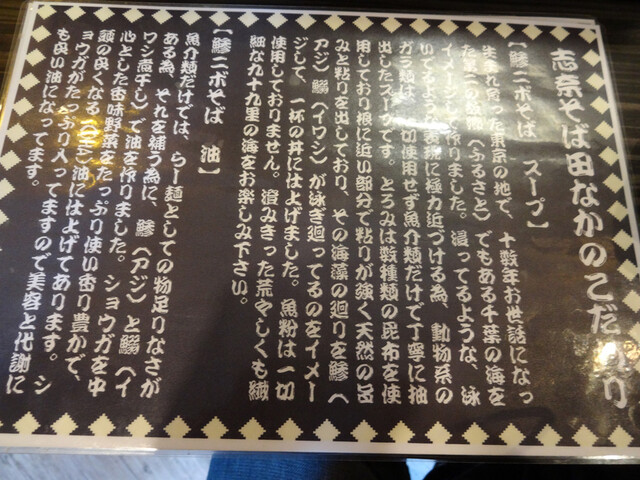 志奈そば田なかのこだわり
【鯵ニボそば スープ】
生まれ育った東京の地で、十数年お世話になっ
た第二の故郷〈ふるさと〉でもある千葉の海を
イメージして作りました。湯ってるような、泳
いでるような表現に極力近づける為、動物系の
ガラ類は一切使用せず魚介類だけで丁寧に抽
出したスープです。とろみは数種類の昆布を使
用しており根に近い部分で粘りが強く天然の旨
みと粘りを出しており、その海藻の廻りを鯵〈
アジ〉鰯〈イワシ〉が泳ぎ廻ってるのをイメー
ジして、一杯の丼に仕上げました。魚粉は一切
使用しておりません。澄みきった荒々しくも繊
細な九十九里の海をお楽しみ下さい。
【鯵ニボそば 油】
魚介類だけでは、らー麺としての物足りなさが
ある為、それを補う為に、鯵〈アジ〉と鰯〈イ
ワシ煮干し〉で油を作りました。ショウガを中
心とした香味野菜をたっぷり使い香り豊かで、
顔の良くなる〈文字〉油に仕上げてあります。シ
ョウガがたっぷり入ってますので美容と代謝に
も良い油になってます。